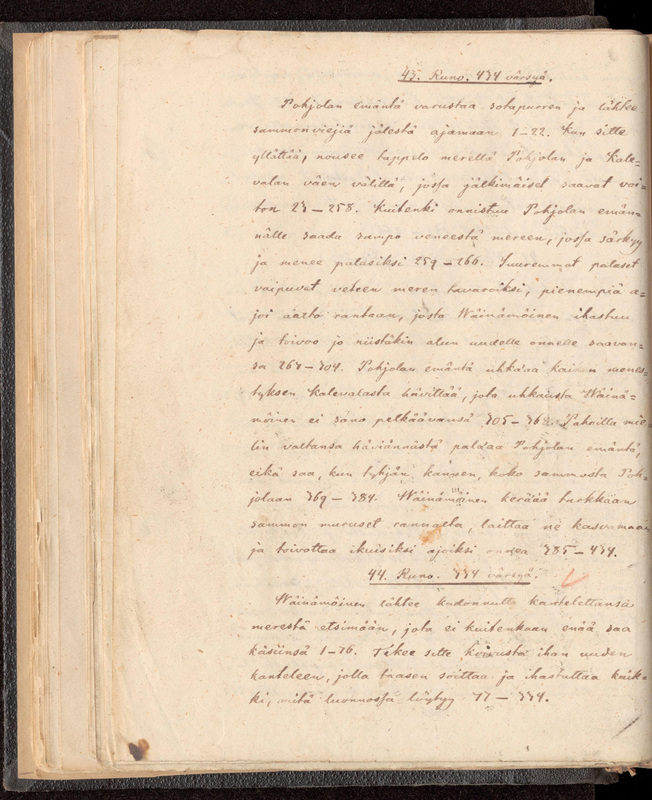 43. Runo. 434 värsyä.
Pohjolan emäntä varustaa sotapurren ja lähtee
sammonviejiä jälestä ajamaan 1–22. Kun sitte
yllättää, nousee tappelo merellä Pohjolan ja Kale-
valan väen välillä, jossa jälkimäiset saavat voi-
ton 23–258. Kuitenki onnistuu Pohjolan emän-
nälle saada sampo veneestä mereen, jossa särkyy
ja menee palasiksi 259–266. Suuremmat palaset
vaipuvat veteen meren tavaroiksi, pienempiä a-
joi aalto rantaan, josta Wäinämöinen ihastuu
ja toivoo jo niistäkin alun uudelle onnelle saavan-
sa 267–304. Pohjolan emäntä uhkaaa kaiken menes-
tyksen Kalevalasta hävittää, jota uhkausta Wäinä-
möinen ei sano pelkäävänsä 305–368. Pahoilla mie-
lin valtansa häviännästä palajaa Pohjolan emäntä,
eikä saa, kun tyhjän kannen, koko sammosta Poh-
jolaan 369–384. Wäinämöinen kerää tarkkaan
sammon muruset rannalta, laittaa ne kasvamaan
ja toivottaa ikuisiksi ajoiksi onnea 385–434.
44. Runo. 334 värsyä.
Wäinämöinen lähtee kadonnutta kantelettansa
merestä etsimään, jota ei kuitenkaan enää saa
käsiinsä 1–76. Tekee sitte koivusta ihan uuden
kanteleen, jolla taasen soittaa ja ihastuttaa kaik-
ki, mitä luonnossa löytyy 77–334.